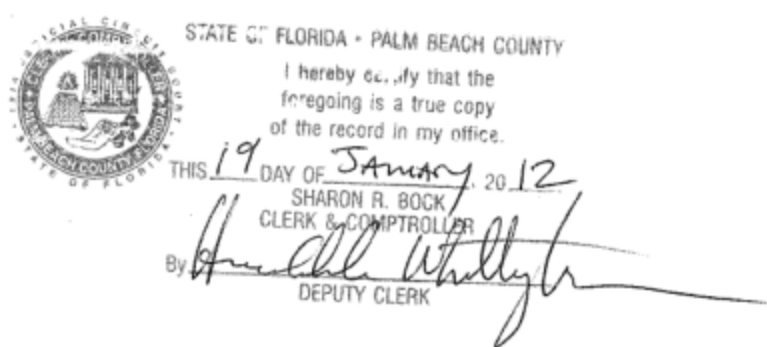 STATE OF FLORIDA • PALM BEACH COUNTY
I hereby certify that the
foregoing is a true copy
of the record in my office.
THIS 19 DAY OF January, 20 12
SHARON R. BOCK
CLERK & COMPTROLLER
By
DEPUTY CLERK
PALM BEACH COUNTY, FLORIDA
STATE OF FLORIDA